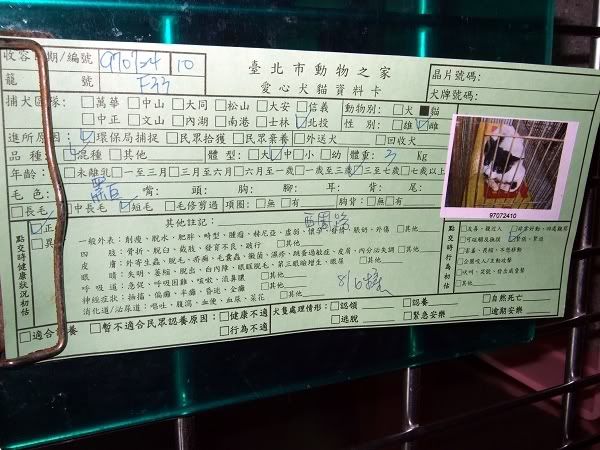 收容日期/編號 970724 10 臺北市動物之家 晶片號碼:
籠號 F33 愛心犬貓資料卡 犬牌號碼:
捕犬區隊: □萬華 □中山 □大同 □松山 □大安 □信義 動物別: □犬 ■貓
□中正 □文山 □內湖 □南港 □士林 ☑北投 性別: □雄 ☑雌
進所原因: ☑環保局捕捉 □民眾拾獲 □民眾棄養 □外送犬 □回收犬
品種: ☑混種 □其他 體型: □大 ☑中 □小 □幼 體重: 3 Kg
年齡: □未離乳 □一至三月 □三月至六月 □六月至一歲 □一歲至三歲 ☑三歲至七歲 □七歲以上
毛色: 黑白 嘴: 頭: 胸: 腳: 耳: 背: 尾:
□長毛 □中長毛 ☑短毛 □毛修剪過 項圈: □無 □有 胸背: □無 □有
97072410
點交時健康狀況初估
☑正
□異
其他註記:
一般外表: 削瘦、脫水、肥胖、畸型、腫瘤、赫尼亞、虛弱、懷孕、發情、眼奶、外傷 □其他
四肢: 骨折、脫臼、截肢、發育不良、跛行 □其他
皮膚: 外寄生蟲、脫毛、疥癬、毛囊蟲、黴菌、濕疹、跳蚤過敏症、皮屑、內分泌失調 □其他
眼睛: 失明、萎縮、脫出、白內障、眼瞼脫毛、第三眼瞼增生、眼屎 □其他
呼吸道: 急促、呼吸困難、咳嗽、流鼻膿 □其他
神經症狀: 抽搐、偏癱、半癱、昏迷、全癱 □其他
消化道/泌尿道: 嘔吐、腹瀉、血便、血尿、菜花 □其他
點交時行為初估
□友善、親近人
□可碰觸及操握
□害羞、畏縮、不想移動
□企圖咬人/主動攻擊
□吠叫、咆號、發出威脅聲
□其他
□適合認養 □暫不適合民眾認養原因: □健康不適 □行為不適
犬隻處理情形: □認領 □認養 □自然死亡
□逃脫 □緊急安樂 □逾期安樂